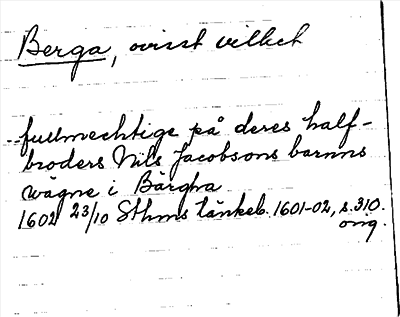 Berga, ovisst vilket
fullmechtige på deres half-
broders Nils Jacobsons barnns
wägne i Bärgha
1602 23/10 Sthms tänkeb. 1601-02, s. 310.
orig.